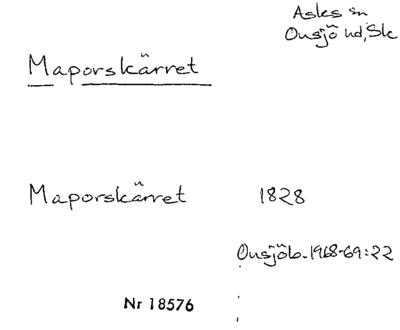 Askes sn
Onsjö hd, Sk
Maporskärret
Maporskärret 1828
Onsjöb. 1968-69:22
Nr 18576